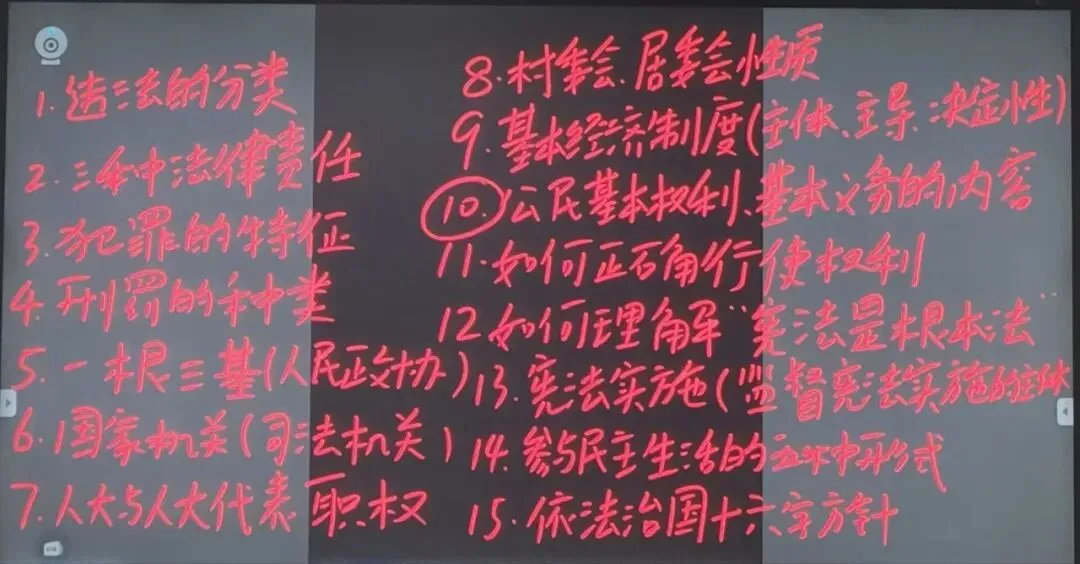 1.违法的分类
2.三种法律责任
3.犯罪的特征
4.刑罚的种类
5.一根三基(人民政协)
6.国家机关(司法机关)
7.人大与人大代表职权
8.村委会、居委会性质
9.基本经济制度(主体、主导、决定性)
10.公民基本权利、基本义务的内容
11.如何正确行使权利
12如何理解“宪法是根本法”
13.宪法实施(监督宪法实施的主体
14.参与民主生活的五种形式
15.依法治国十六字方针